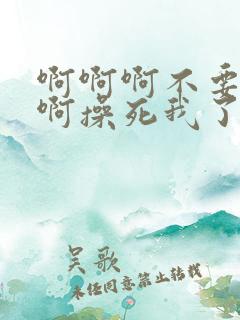 啊啊啊不要
啊操死我了
吴歌
未经同意禁止转载